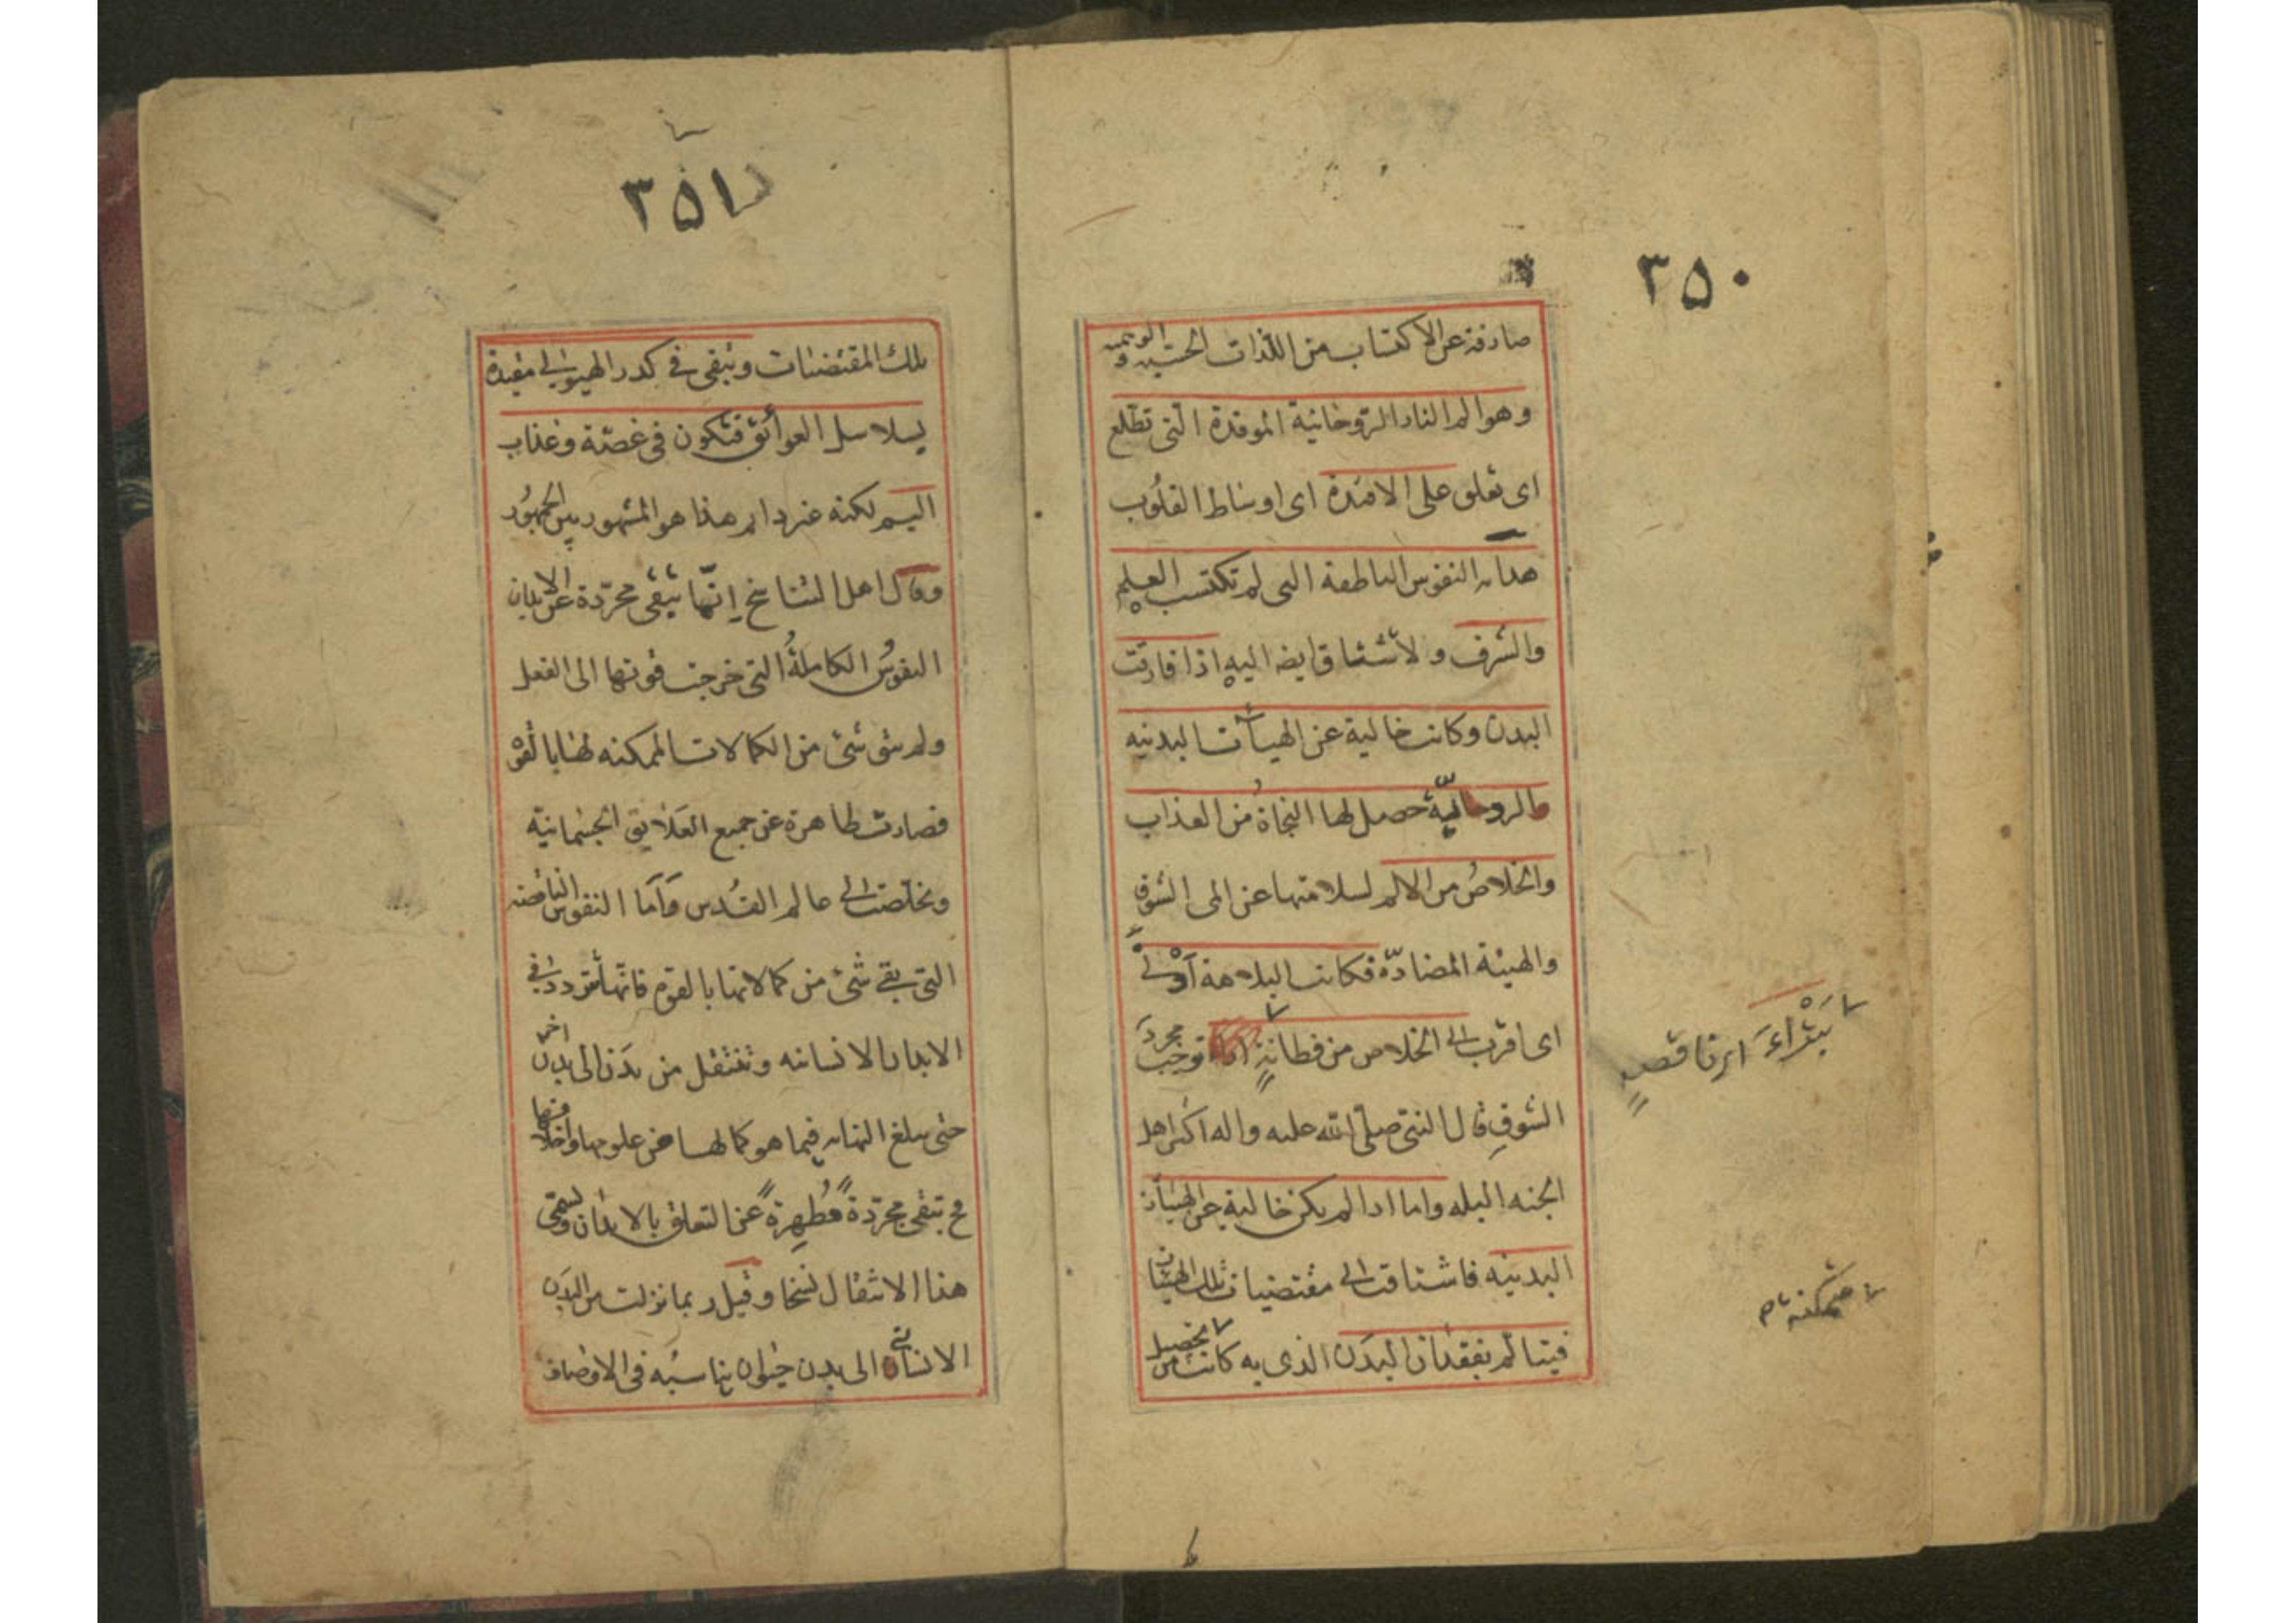 ٣٥٠
صارفة عن الاكتساب من اللذات الحسية والوهمية
وهو الم النار الروحانية الموقدة التى تطلع
اى تعلق على الافئدة اى اوساط القلوب
هداية النفوس الناطقة التى لم تكتسب العلم
والشرف ولا تشتاق ايضا اليه اذا فارقت
البدن وكانت خالية عن الهيآت البدنية
الروحانيّة حصل لها النجاةُ من العذاب
والخلاصُ من الالم لسلامتها عن المى الشوقِ
والهيئة المضادّة فكانت البلاهة اَوْلى
اى اقرب الى الخلاص من فطانةٍ توجب مجرد
الشوقِ قال النبى صلّى الله عليه واله اكثر اهل
الجنه البله واما اذا لم يكن خالية عن الهيئات
البدنية فاشتاقت الى مقتضيات تلك الهيئات
فيتالم بفقدان البدَن الذى به كانت تحصيل
بَتْراءَ اى ناقصةٍ
متمكنة تام
٣٥١
تلك المقتضيات وتبقى فى كدر الهيولى مقيدة
بسلاسل العوائق فتكون فى غصّة وعذاب
اليم لكنه غير دايم هذا هو المشهور بين الجمهُور
وقال اهل التناسخ اِنّما تبقى مجرّدة عن الابدان
النفوسُ الكاملةُ التى خرجت قوتها الى الفعل
ولم يبق شئ من الكمالات الممكنه لها بالقوة
فصارت طاهرة عن جميع العَلايق الجسمانية
وتخلّصت الى عالم القُدس وَاَمّا النفوس الناقصة
التى بقى شئ من كمالاتها بالقوة فانّها تتردد فى
الابدان الانسانيه وتنتقل من بدَن الى بدن اخر
حتى يبلغ النهاية فيما هو كمالها من علومها واخلاقها
فح تبقى مجرّدةً مُطهرةً عن التعلق بالابدان ويسمّى
هذا الانتقال نسخا وقيل ربما نزلت من البدَن
الانسانى الى بدن حيوان يناسبه فى الاوصاف